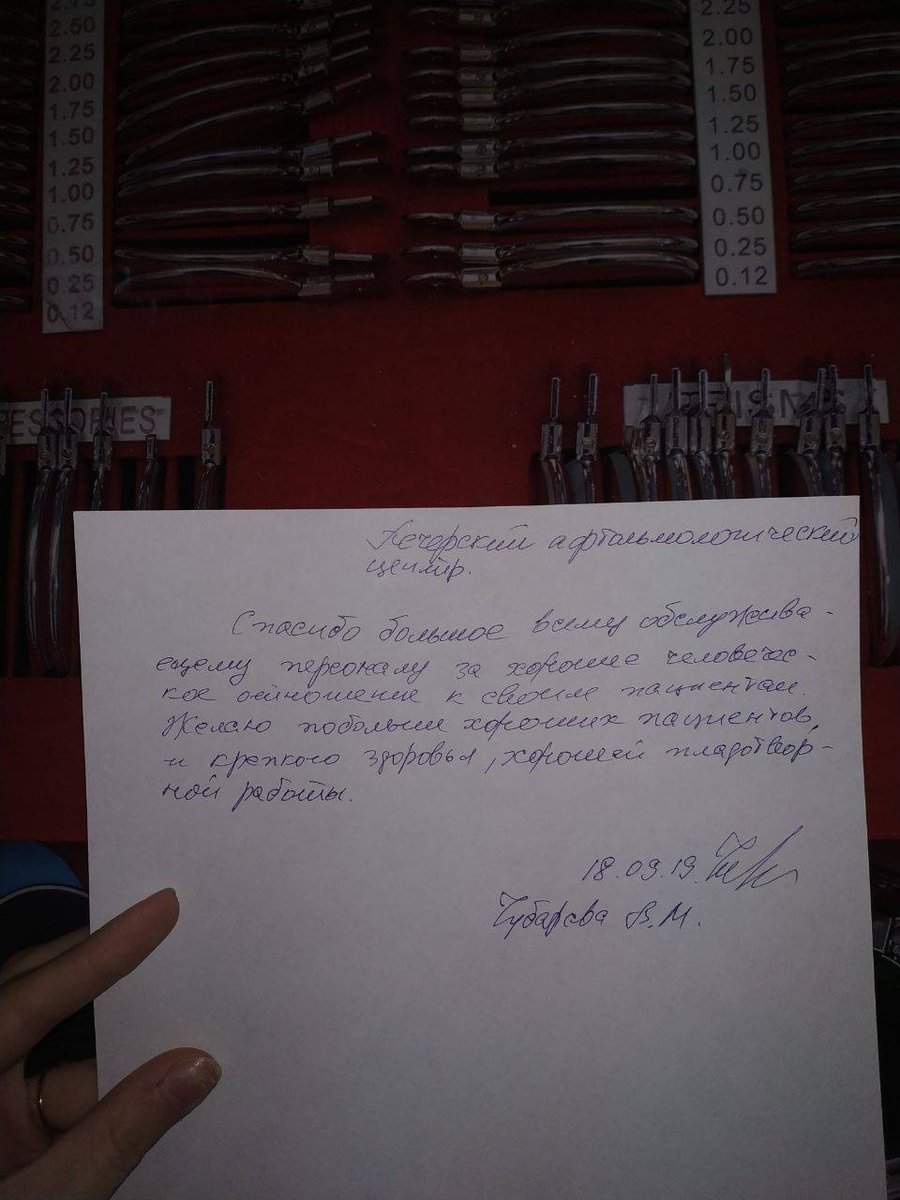 2.75
2.50
2.25
2.00
1.75
1.50
1.25
1.00
0.75
0.50
0.25
0.12
2.25
2.00
1.75
1.50
1.25
1.00
0.75
0.50
0.25
0.12
ESSORIES
PRISMS
Печерский афтальмологический
центр.
Спасибо большое всему обслужива-
ещему персоналу за хорошее человечес-
кое отношение к своим пациентам.
Желаю побольше хороших пациентов,
и крепкого здоровья, хорошей пладотвор-
ной работы.
18.09.19
Чубарева В.М.